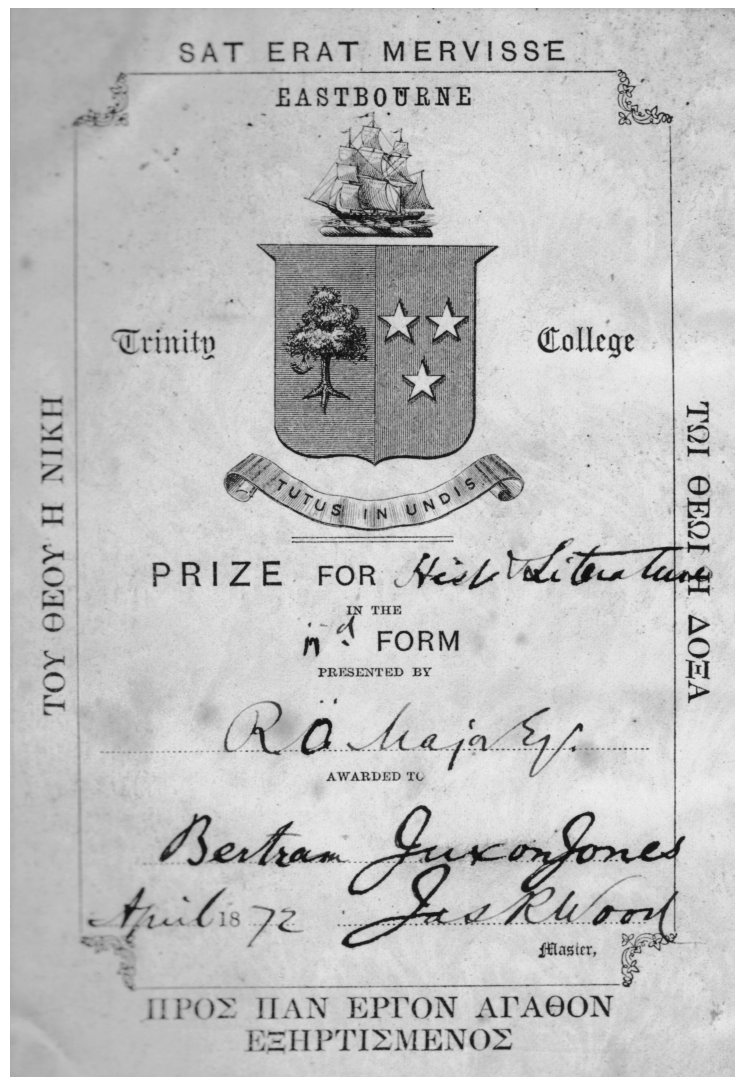 SAT ERAT MERVISSE
EASTBOURNE
Trinity College
TUTUS IN UNDIS
ΤΟΥ ΘΕΟΥ Η ΝΙΚΗ
ΤΩΙ ΘΕΩΙ Η ΔΟΞΑ
PRIZE FOR Hist & Literature
IN THE
II d FORM
PRESENTED BY
Major Esq.
AWARDED TO
Bertram Juxon Jones
April 1872 Jas R Wood
Master,
ΠΡΟΣ ΠΑΝ ΕΡΓΟΝ ΑΓΑΘΟΝ
ΕΞΗΡΤΙΣΜΕΝΟΣ